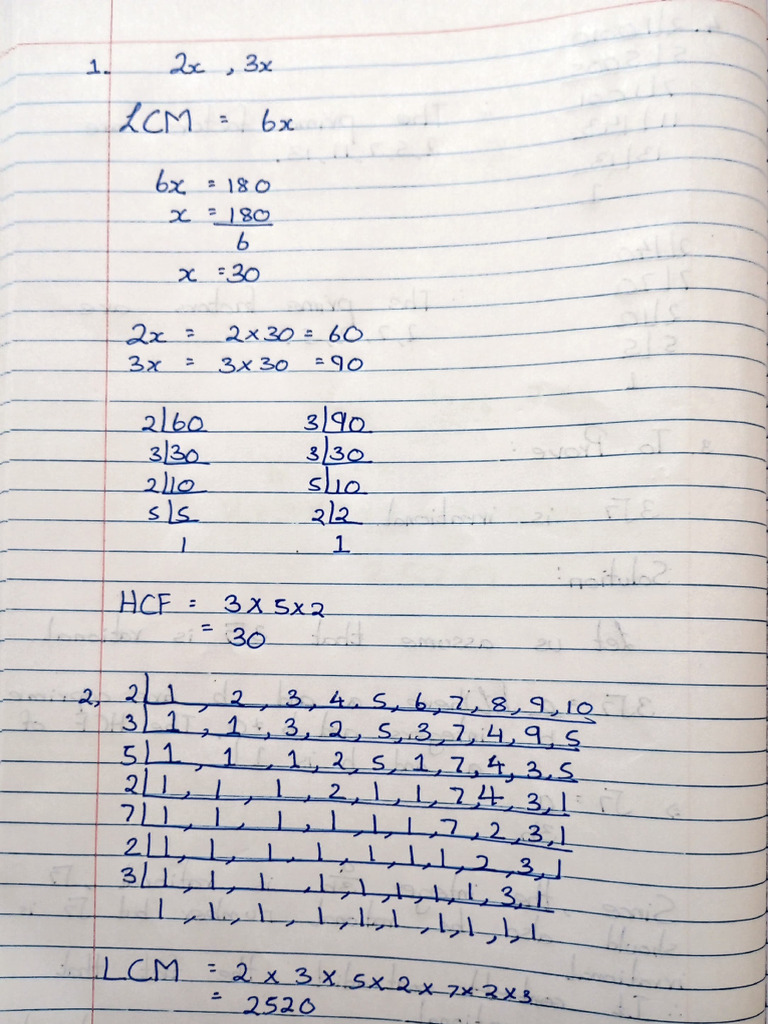 1. 2x , 3x
LCM = 6x
6x = 180
x = 180
6
x = 30
2x = 2 x 30 = 60
3x = 3 x 30 = 90
2|60 3|90
3|30 3|30
2|10 5|10
5|5 2|2
1 1
HCF = 3 x 5 x 2
= 30
2, 2|1, 2, 3, 4, 5, 6, 7, 8, 9, 10
3|1, 1, 3, 2, 5, 3, 7, 4, 9, 5
5|1, 1, 1, 2, 5, 1, 7, 4, 3, 5
2|1, 1, 1, 2, 1, 1, 7, 4, 3, 1
7|1, 1, 1, 1, 1, 1, 7, 2, 3, 1
2|1, 1, 1, 1, 1, 1, 1, 2, 3, 1
3|1, 1, 1, 1, 1, 1, 1, 1, 3, 1
1, 1, 1, 1, 1, 1, 1, 1, 1, 1
LCM = 2 x 3 x 5 x 2 x 7 x 2 x 3
= 2520